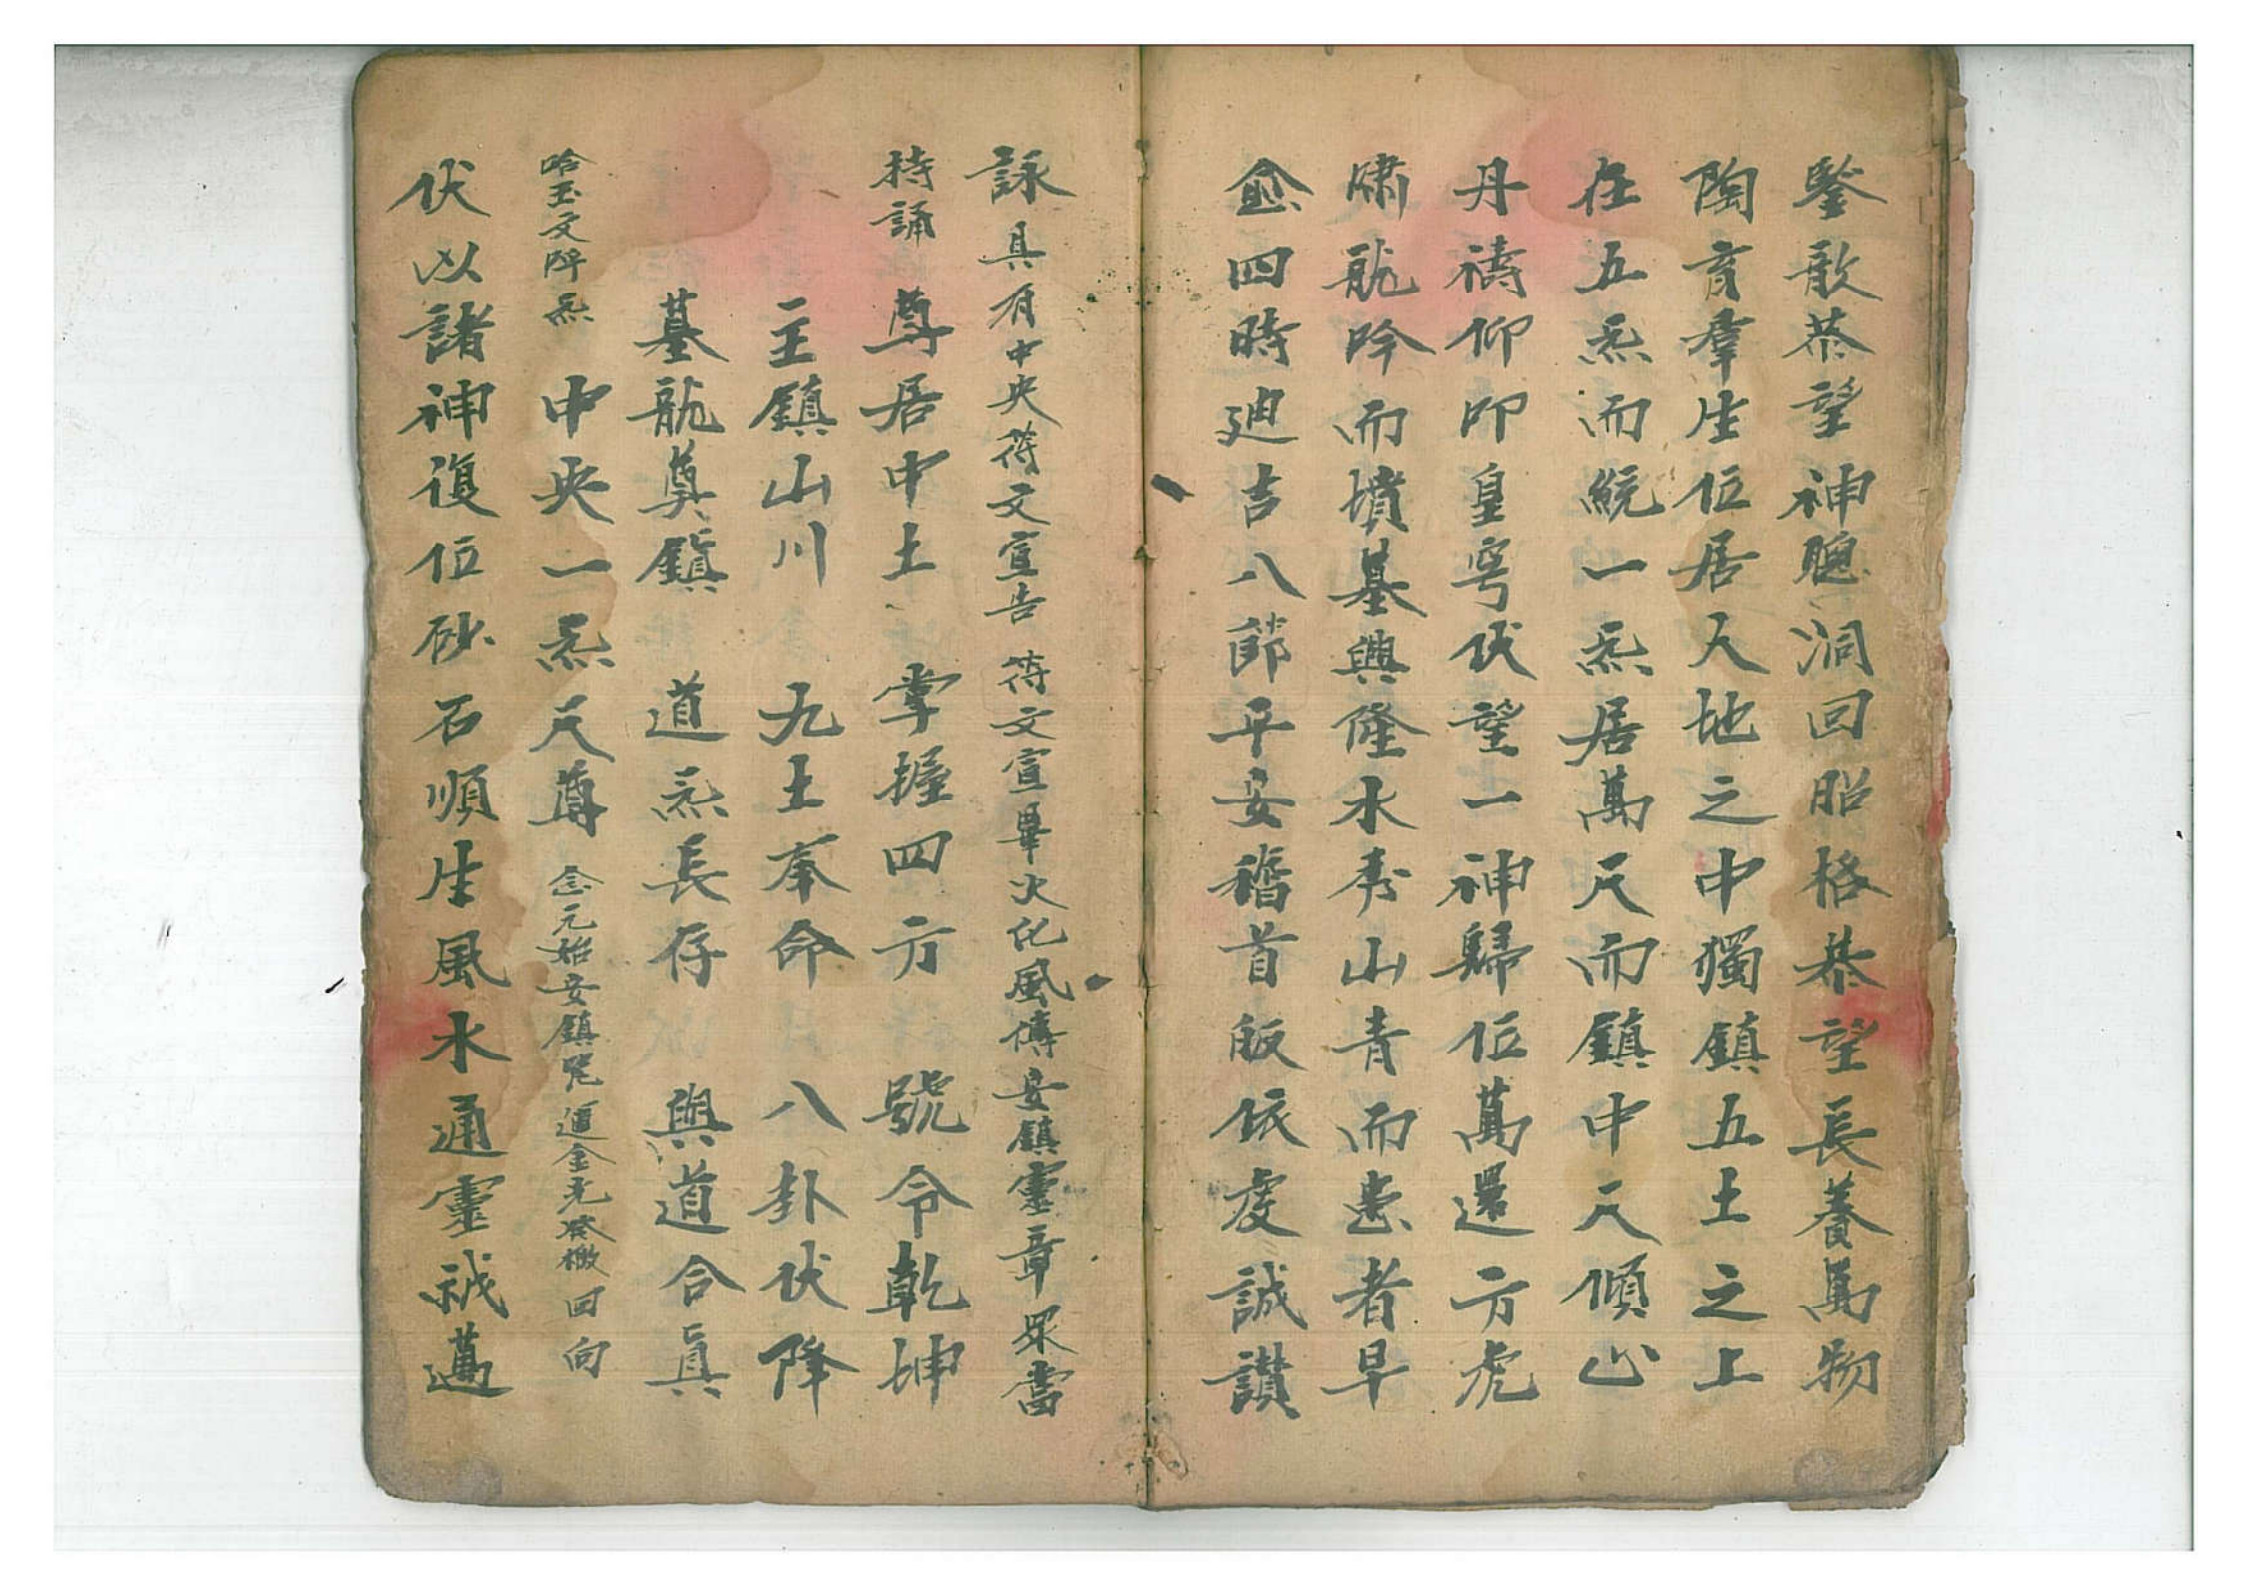 鑒歆恭望神聰洞回昭格恭望長養萬物
陶育羣生位居天地之中獨鎮五土之上
在五炁而統一炁居萬天而鎮中天傾心
丹禱仰叩皇穹伏望一神歸位萬還方虎
嘯龍吟而墳基興隆水秀山青而患者早
愈四時廸吉八節平安稽首皈依虔誠讃
詠具有中央符文宣告符文宣畢火化風傳安鎮靈章眾當
持誦尊居中土掌握四方號令乾坤
主鎮山川九土奉命八卦伏降
墓龍奠鎮道炁長存與道合真
吟玉文降炁中央一炁天尊念元始安鎮咒運金光發檄回向
伏以諸神復位砂石順生風水通靈誠邁